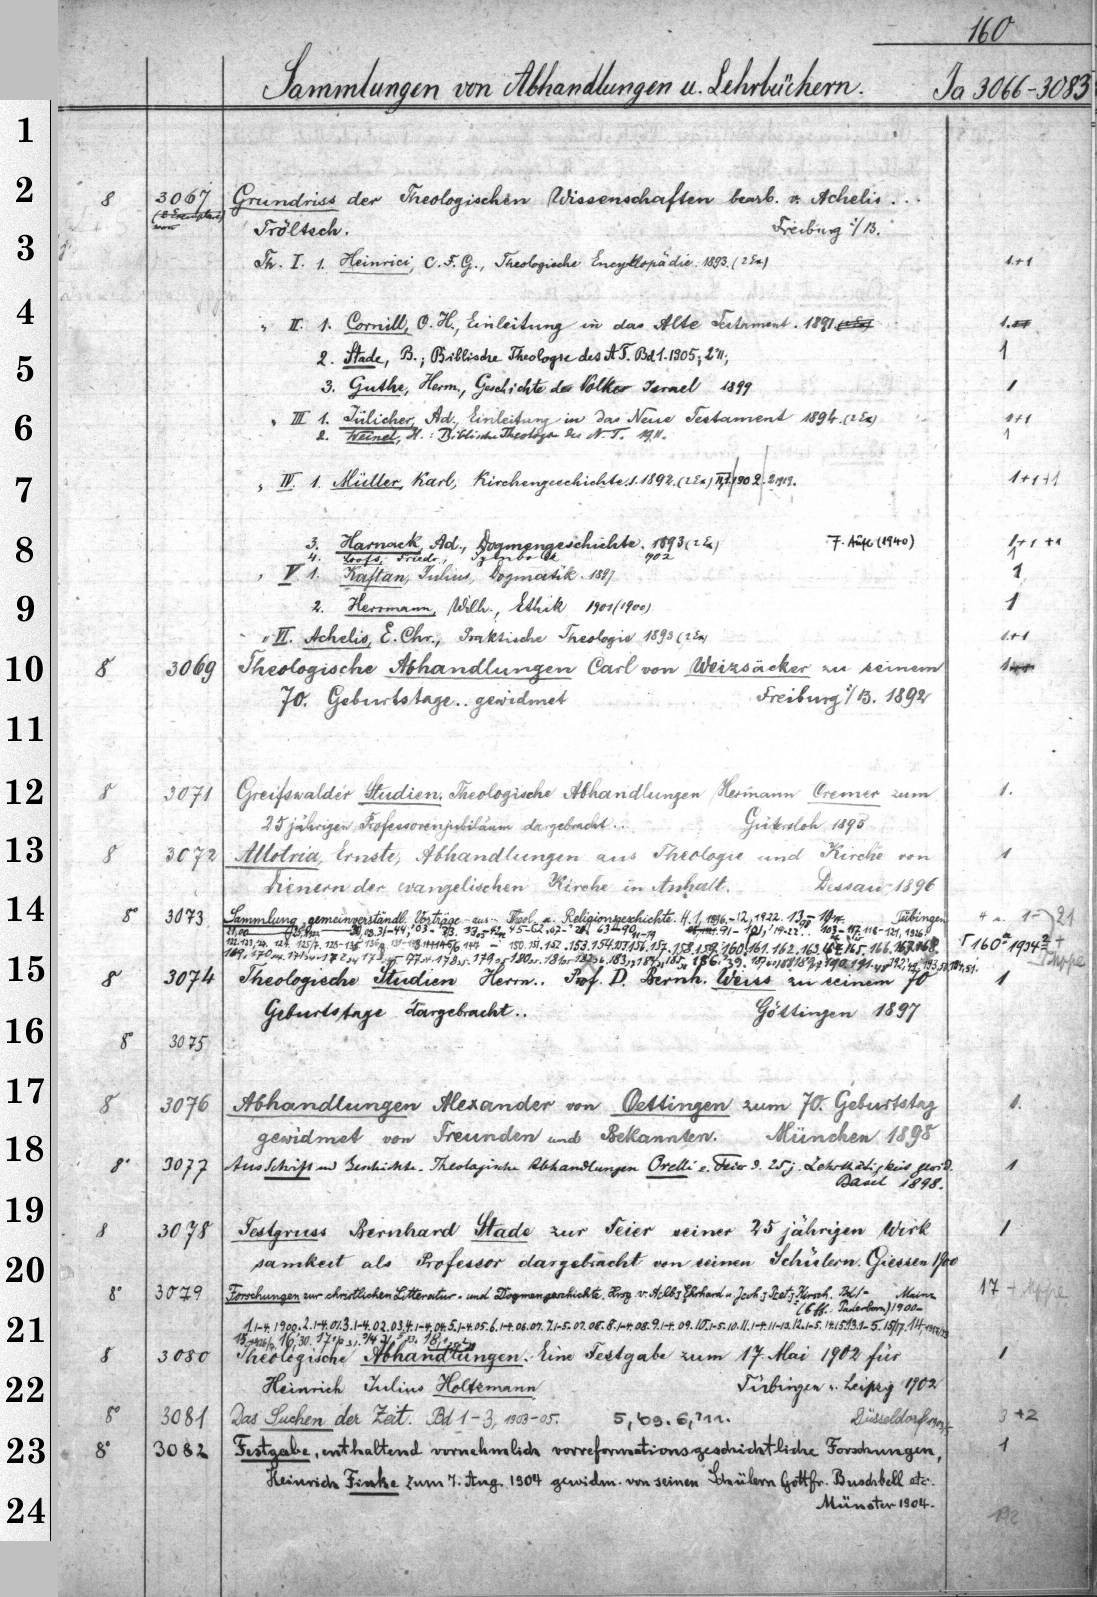 160
Sammlungen von Abhandlungen u. Lehrbüchern. Ia 3066-3083
1
2
8 3067 Grundriss der Theologischen Wissenschaften bearb. v. Achelis...
Tröltsch. Freiburg i/B.
3
Th. I. 1. Heinrici, C. F. G., Theologische Encyklopädie. 1893. (2 Ex) 1+1
4
" II. 1. Cornill, C. H., Einleitung in das Alte Testament. 1891. 1.
2. Stade, B.; Biblische Theologie des A.T. Bd 1. 1905; 2 11; 1
5
3. Guthe, Herm., Geschichte des Volkes Israel 1899 1
" III 1. Jülicher, Ad., Einleitung in das Neue Testament 1894. (2 Ex) 1+1
6
2. Weinel, H.: Biblische Theologie des N.T. 1911. 1
7
" IV. 1. Müller, Karl, Kirchengeschichte. 1. 1892. (2 Ex) II,1 1902. 2. 1919. 1+1+1
8
3. Harnack, Ad., Dogmengeschichte. 1893 (2 Ex) 7. Aufl (1940) 1+1+1
4. Loofs, Friedr., Symbolik 902 1
" V 1. Kaftan, Julius, Dogmatik. 1897 1
9
2. Herrmann, Wilh., Ethik 1901 (1900) 1
" VI. Achelis, E. Chr., Praktische Theologie 1893 (2 Ex) 1+1
10
8 3069 Theologische Abhandlungen Carl von Weizsäcker zu seinem 1
70. Geburtstage.. gewidmet Freiburg i/B. 1892
11
12
8 3071 Greifswalder Studien. Theologische Abhandlungen Hermann Cremer zum 1.
25 jährigen Professorenjubiläum dargebracht.. Gütersloh 1895
13
8 3072 Allotria, Ernste, Abhandlungen aus Theologie und Kirche von 1
Dienern der evangelischen Kirche in Anhalt. Dessau 1896
14
8° 3073 Sammlung gemeinverständl. Vorträge aus Theol. u. Religionsgeschichte. H. 1, 1896-12, 1922. Tübingen
15
8 3074 Theologische Studien Herrn.. Prof. D. Bernh. Weiss zu seinem 70 1
Geburtstage dargebracht.. Göttingen 1897
16
8° 3075
17
8 3076 Abhandlungen Alexander von Oettingen zum 70. Geburtstag 1.
gewidmet von Freunden und Bekannten. München 1898
18
8° 3077 Aus Schrift und Geschichte. Theologische Abhandlungen Orelli z. Feier s. 25 j. Lehrtätigkeit gewid. 1
Basel 1898.
19
8 3078 Festgruss Bernhard Stade zur Feier seiner 25 jährigen Wirk 1
samkeit als Professor dargebracht von seinen Schülern. Giessen 1900
20
8° 3079 Forschungen zur christlichen Litteratur- und Dogmengeschichte. Hrsg. v. Alb. Ehrhard u. Kirsch. Bd 1- Mainz 17
(6 ff.: Paderborn) 1900-
21
8 3080 Theologische Abhandlungen. Eine Festgabe zum 17. Mai 1902 für 1
22
Heinrich Julius Holtzmann Tübingen u. Leipzig 1902
8° 3081 Das Suchen der Zeit. Bd 1-3, 1903-05. 5, '09. 6, '11. Düsseldorf 3+2
23
8° 3082 Festgabe, enthaltend vornehmlich vorreformationsgeschichtliche Forschungen, 1
Heinrich Finke zum 7. Aug. 1904 gewidm. von seinen Schülern Gottfr. Buschbell etc.
24
Münster 1904.